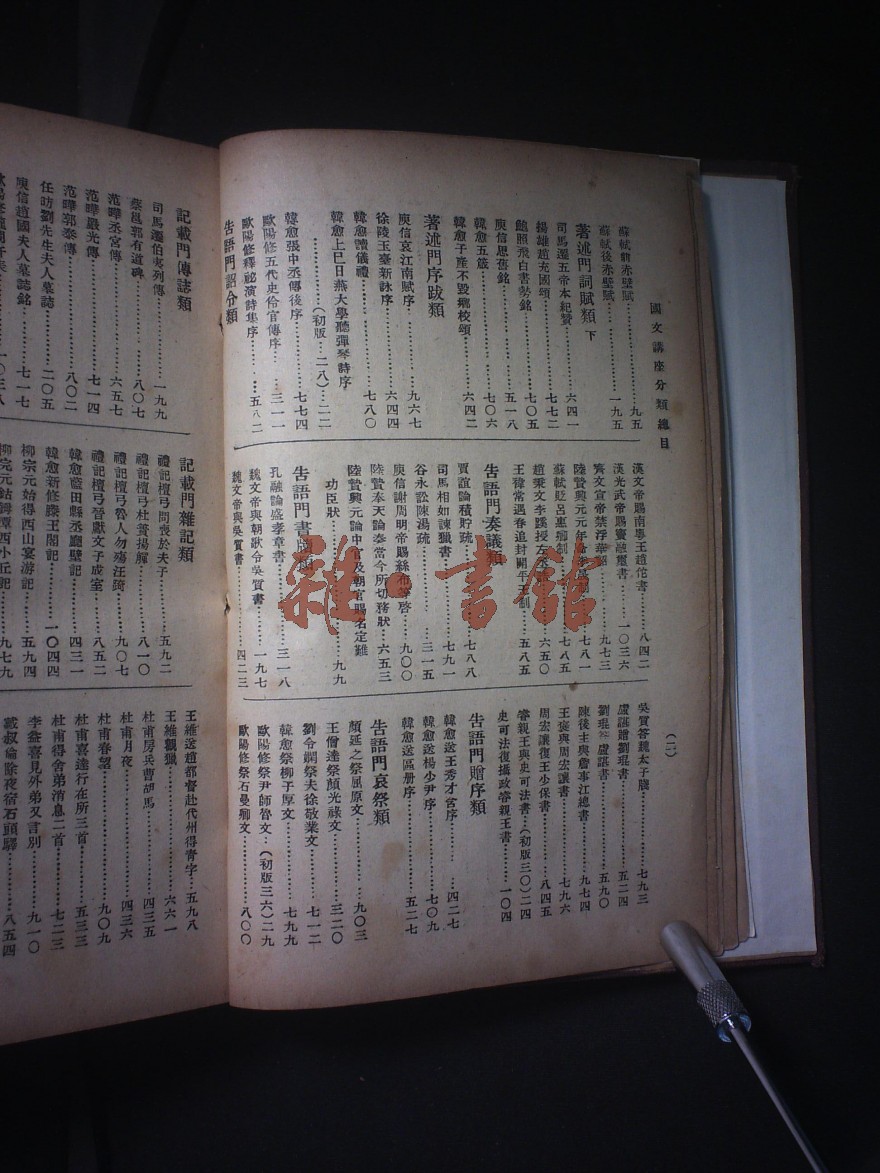 國文講座分類總目
(二)
蘇軾前赤壁賦……九五
蘇軾後赤壁賦……一九五
著述門詞賦類 下
司馬遷五帝本紀贊……六四一
揚雄趙充國頌……七七二
鮑照飛白書勢銘……七〇五
庾信思舊銘……五一八
韓愈五箴……七〇六
韓愈子產不毀鄉校頌……六四二
著述門序跋類
庾信哀江南賦序……九六七
徐陵玉臺新詠序……六四四
韓愈讀儀禮……七八〇
韓愈上巳日燕大學聽彈琴詩序
……(初版…二八)…二二
韓愈張中丞傳後序……七七四
歐陽修五代史伶官傳序…三一一
歐陽修釋祕演詩集序……五八二
告語門詔令類
漢文帝賜南粵王趙佗書…八四二
漢光武帝賜竇融璽書…一〇三六
齊文宣帝禁浮華詔……九七三
陸贄興元元年……七八一
蘇軾貶呂惠卿制……七八五
趙秉文李蹊授左丞……六五〇
王禕常遇春追封開平王制…五八五
告語門奏議類
賈誼論積貯疏……七八八
司馬相如諫獵書……七九一
谷永訟陳湯疏……三一五
庾信謝周明帝賜絲布等啓…九〇〇
陸贄奉天論奉當今所切務狀…六五三
陸贄興元論中官及朝官賜名定難
功臣狀……九九
告語門書牘類
孔融論盛孝章書……三一八
魏文帝與朝歌令吳質書……一九七
魏文帝與吳質書……四二三
吳質答魏太子牋……七九三
盧諶贈劉琨書……五二四
劉琨答盧諶書……五九〇
陳後主與詹事江總書……九七四
王褒與周宏讓書……七九六
周宏讓復王少保書……八四五
睿親王與史可法書…(初版三〇)二四
史可法復攝政睿親王書…一〇四
告語門贈序類
韓愈送王秀才含序……四二七
韓愈送楊少尹序……七〇九
韓愈送區册序……五二七
告語門哀祭類
顏延之祭屈原文……九〇三
王僧達祭顏光祿文……三二〇
劉令嫻祭夫徐敬業文……七一二
韓愈祭柳子厚文……七九九
歐陽修祭尹師魯文…(初版三六)二九
歐陽修祭石曼卿文……八〇〇
記載門傳誌類
司馬遷伯夷列傳……一九九
蔡邕郭有道碑……八〇七
范曄丞宮傳……六五七
范曄嚴光傳……七一四
范曄郭泰傳……八〇二
任昉劉先生夫人墓誌……二〇五
庾信趙國夫人墓誌銘……七一七
記載門雜記類
禮記檀弓問喪於夫子……五九二
禮記檀弓杜蕢揚觶……八一〇
禮記檀弓魯人勿殤汪踦…九〇七
禮記檀弓晉獻文子成室…八五二
韓愈藍田縣丞廳壁記……四三一
韓愈新修滕王閣記……一〇四四
柳宗元始得西山宴游記…五九四
柳宗元鈷鉧潭西小丘記…九七九
王維送趙都督赴代州得青字…五九八
王維觀獵……六六一
杜甫房兵曹胡馬……四三五
杜甫月夜……四三六
杜甫春望……九〇九
杜甫喜達行在所三首……五三三
杜甫得舍弟消息二首……七二三
李益喜見外弟又言別……九一〇
戴叔倫除夜宿石頭驛……八五四
雜·書館